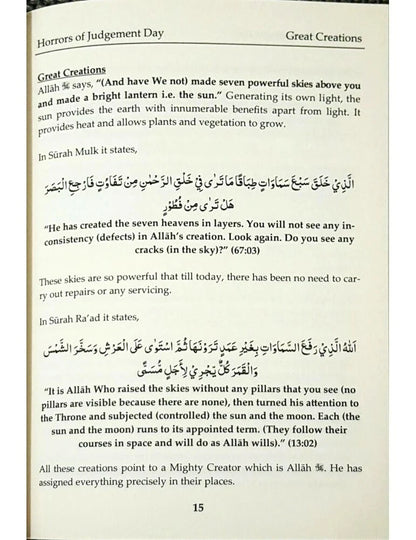 Horrors of Judgement Day Great Creations
Great Creations
Allāh ﷻ says, “(And have We not) made seven powerful skies above you
and made a bright lantern i.e. the sun.” Generating its own light, the
sun provides the earth with innumerable benefits apart from light. It
provides heat and allows plants and vegetation to grow.
In Sūrah Mulk it states,
الَّذِيْ خَلَقَ سَبْعَ سَمَاوَاتٍ طِبَاقًا مَا تَرٰى فِيْ خَلْقِ الرَّحْمٰنِ مِنْ تَفَاوُتٍ فَارْجِعِ الْبَصَرَ
هَلْ تَرٰى مِنْ فُطُوْرٍ
“He has created the seven heavens in layers. You will not see any in-
consistency (defects) in Allāh’s creation. Look again. Do you see any
cracks (in the sky)?” (67:03)
These skies are so powerful that till today, there has been no need to car-
ry out repairs or any servicing.
In Sūrah Ra’ad it states,
اَللهُ الَّذِيْ رَفَعَ السَّمَاوَاتِ بِغَيْرِ عَمَدٍ تَرَوْنَهَا ثُمَّ اسْتَوٰى عَلَى الْعَرْشِ وَسَخَّرَ الشَّمْسَ
وَالْقَمَرَ كُلٌّ يَّجْرِيْ لِأَجَلٍ مُّسَمًّى
“It is Allāh Who raised the skies without any pillars that you see (no
pillars are visible because there are none), then turned his attention to
the Throne and subjected (controlled) the sun and the moon. Each (the
sun and the moon) runs to its appointed term. (They follow their
courses in space and will do as Allāh wills).” (13:02)
All these creations point to a Mighty Creator which is Allāh ﷻ. He has
assigned everything precisely in their places.
15